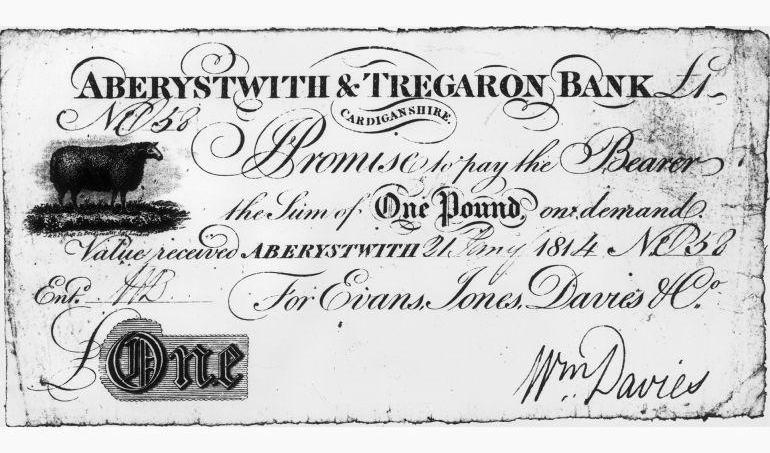 ABERYSTWITH & TREGARON BANK £1
CARDIGANSHIRE.
No P58
I Promise to pay the Bearer
the Sum of One Pound, on demand.
Value received ABERYSTWITH 21 Jany 1814 No P58
Entd. HB
For Evans, Jones, Davies & Co.
£One
Wm Davies